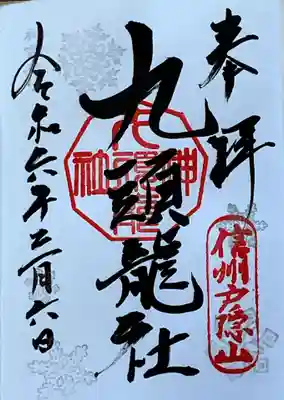 奉拝
信州戸隠山
九頭龍社
九頭龍神社
令和六年二月六日